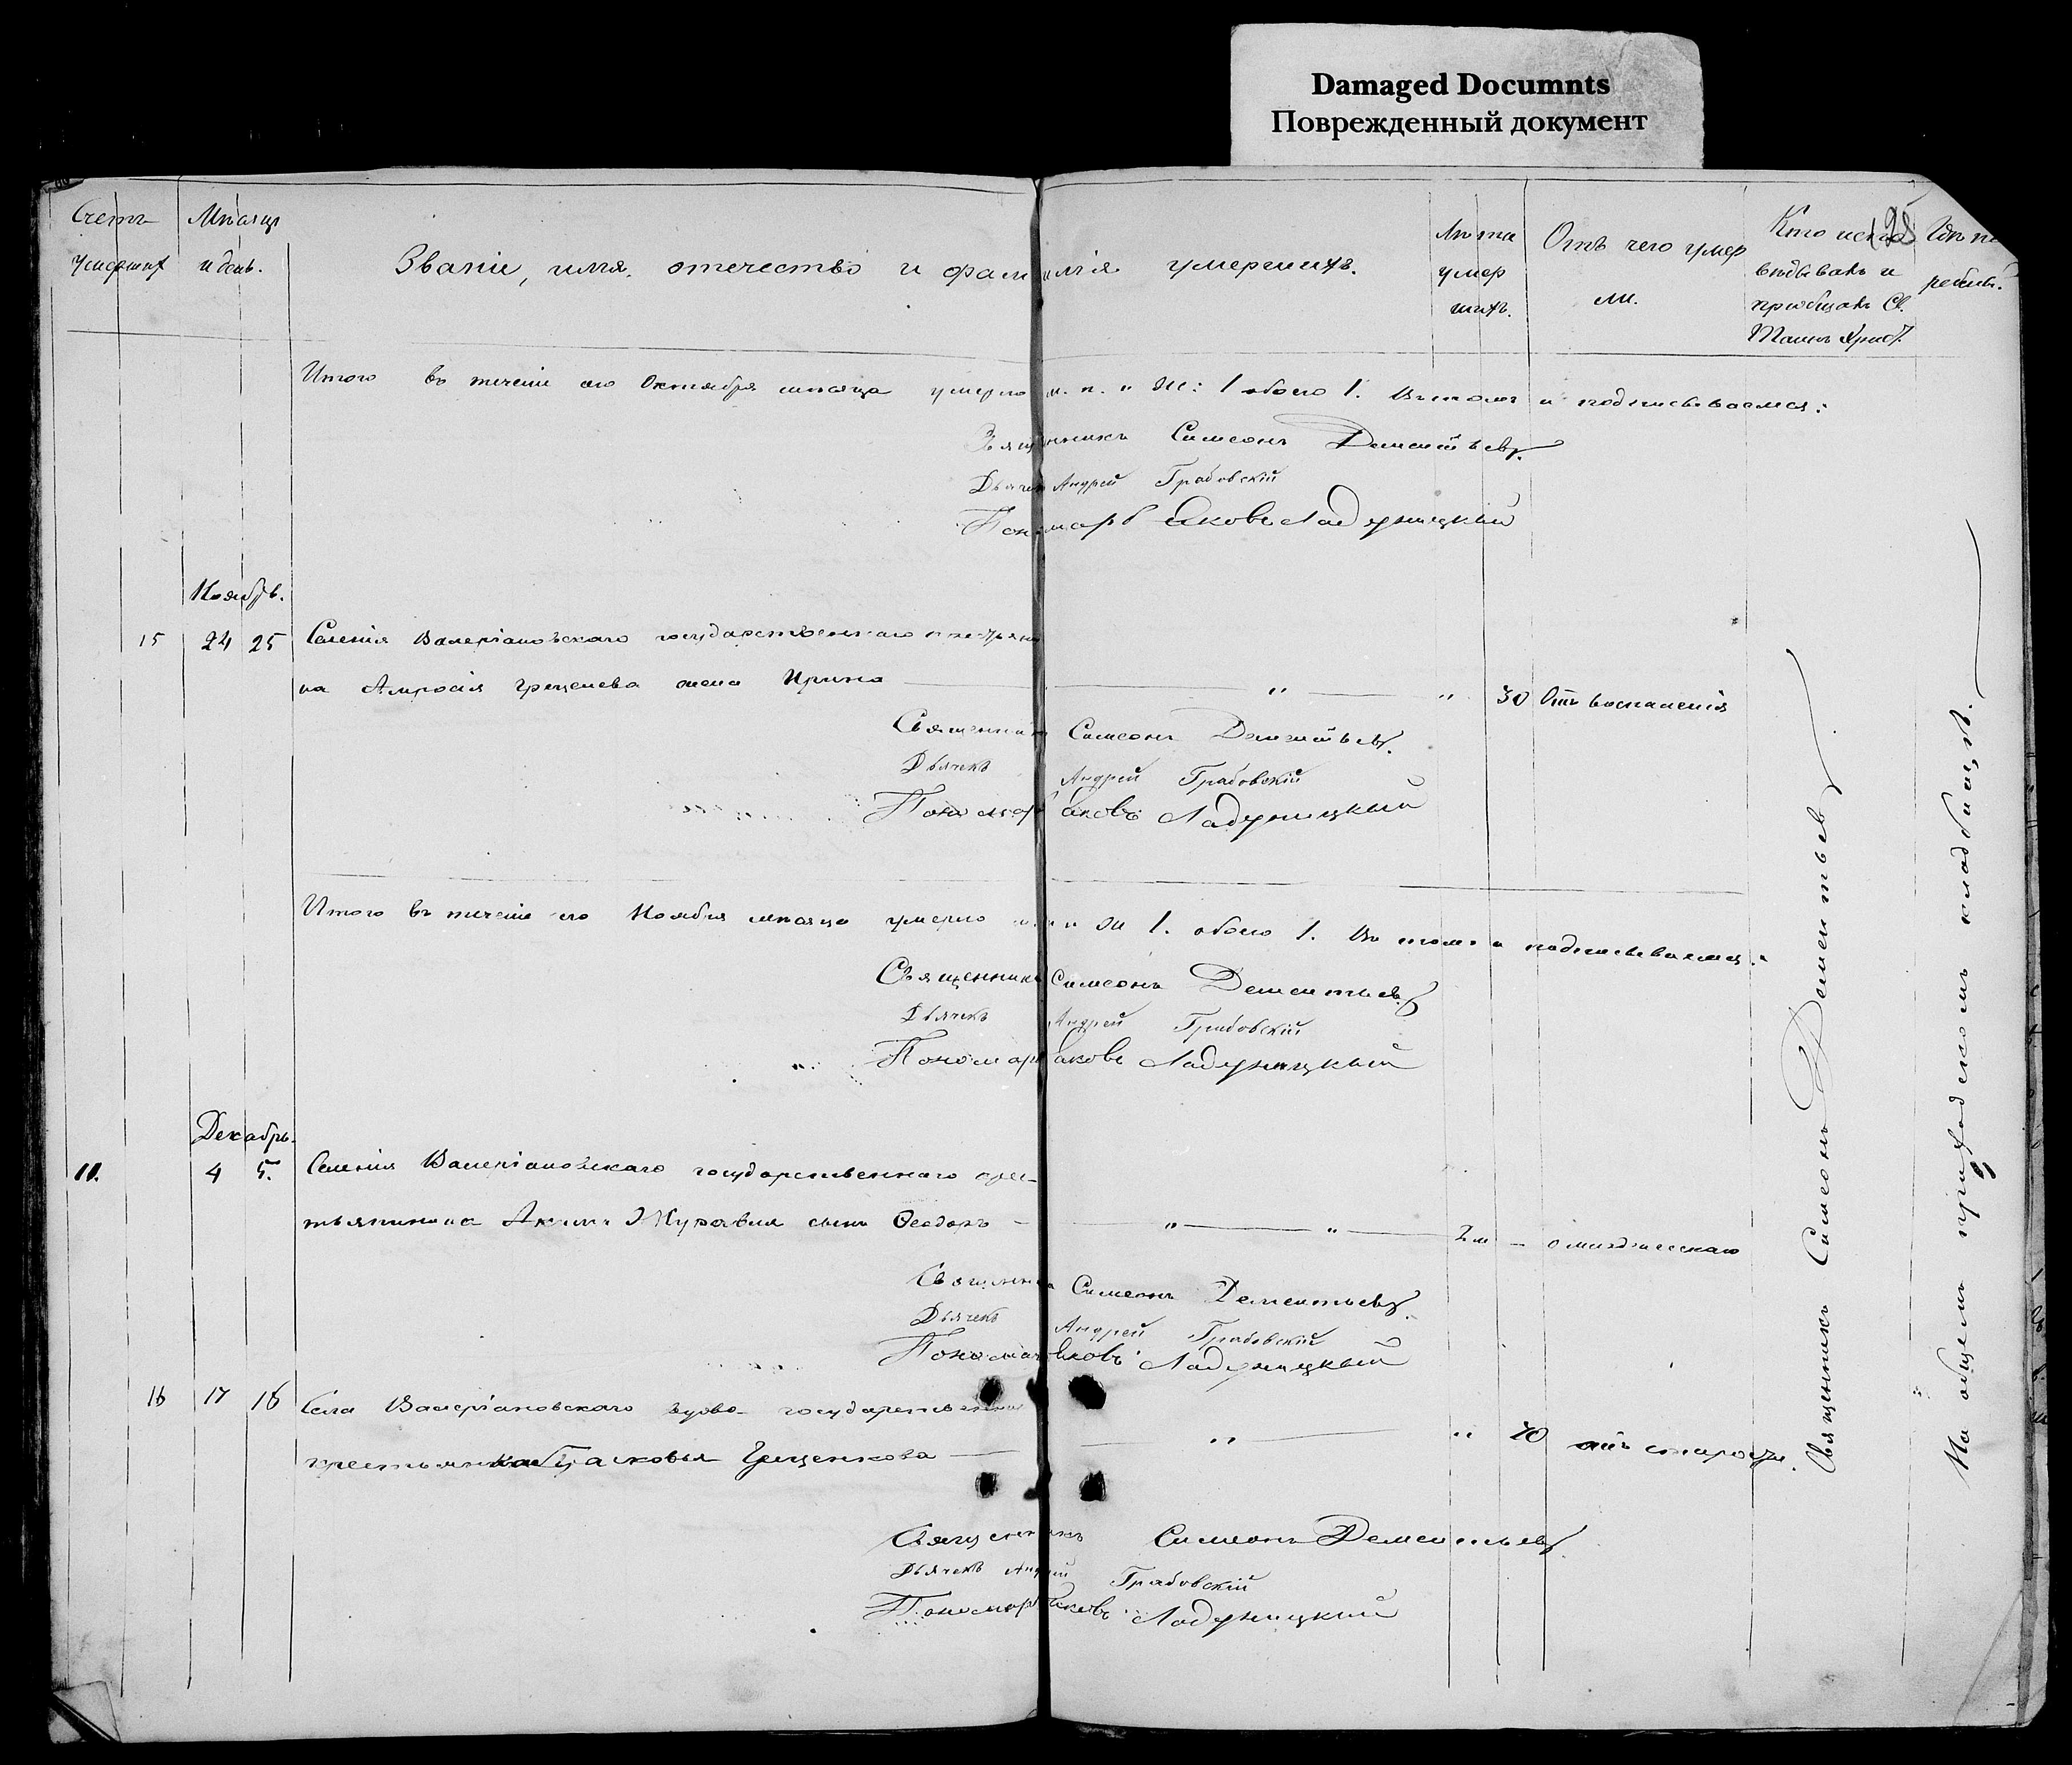 Damaged Documnts
Поврежденный документ
Счетъ умершихъ
Мѣсяцъ и день.
Званіе, имя, отечество и фамилія умершихъ.
Лѣта умершихъ.
Отъ чего умерли.
Кто исповѣдывалъ и пріобщалъ Св. Таинъ Христ.
Гдѣ погребены.
Итого въ теченіе сего Октября мѣсяца умерло м. п. " Ж: 1 обоего 1. Въ томъ и подписываемся:
Священникъ Симеонъ Дементьевъ.
Дьячекъ Андрей Грабовскій
Пономарь Яковъ Ладуницкый
Ноябрь.
15 24 25 Селенія Валеріановскаго государственнаго крестьяни
на Амросія Грещенева жена Ирина " " 30 Отъ воспаленія
Священникъ Симеонъ Дементьевъ.
Дьячекъ Андрей Грабовскій
Пономарь Яковъ Ладуницкый
Итого въ теченіе сего Ноября мѣсяца умерло м. п. " Ж 1. обоего 1. Въ томъ и подписываемся:
Священникъ Симеонъ Дементьевъ
Дьячекъ Андрей Грабовскій
Пономарь Яковъ Ладуницкый
Декабрь.
11. 4 5. Селенія Валеріановскаго государственнаго крес-
тьянина Акима Журавля сынъ Ѳеодоръ " " 2 м —
Священникъ Симеонъ Дементьевъ.
Дьячекъ Андрей Грабовскій
Пономарь Яковъ Ладуницкый
16 17 18 Села Валеріановскаго вдова государственная
крестьянка Парасковья Грещенкова " " 70 отъ старости.
Священникъ Симеонъ Дементьевъ.
Дьячекъ Андрей Грабовскій
Пономарь Яковъ Ладуницкый
Священникъ Симеонъ Дементьев
На общемъ приходскомъ кладбищѣ.